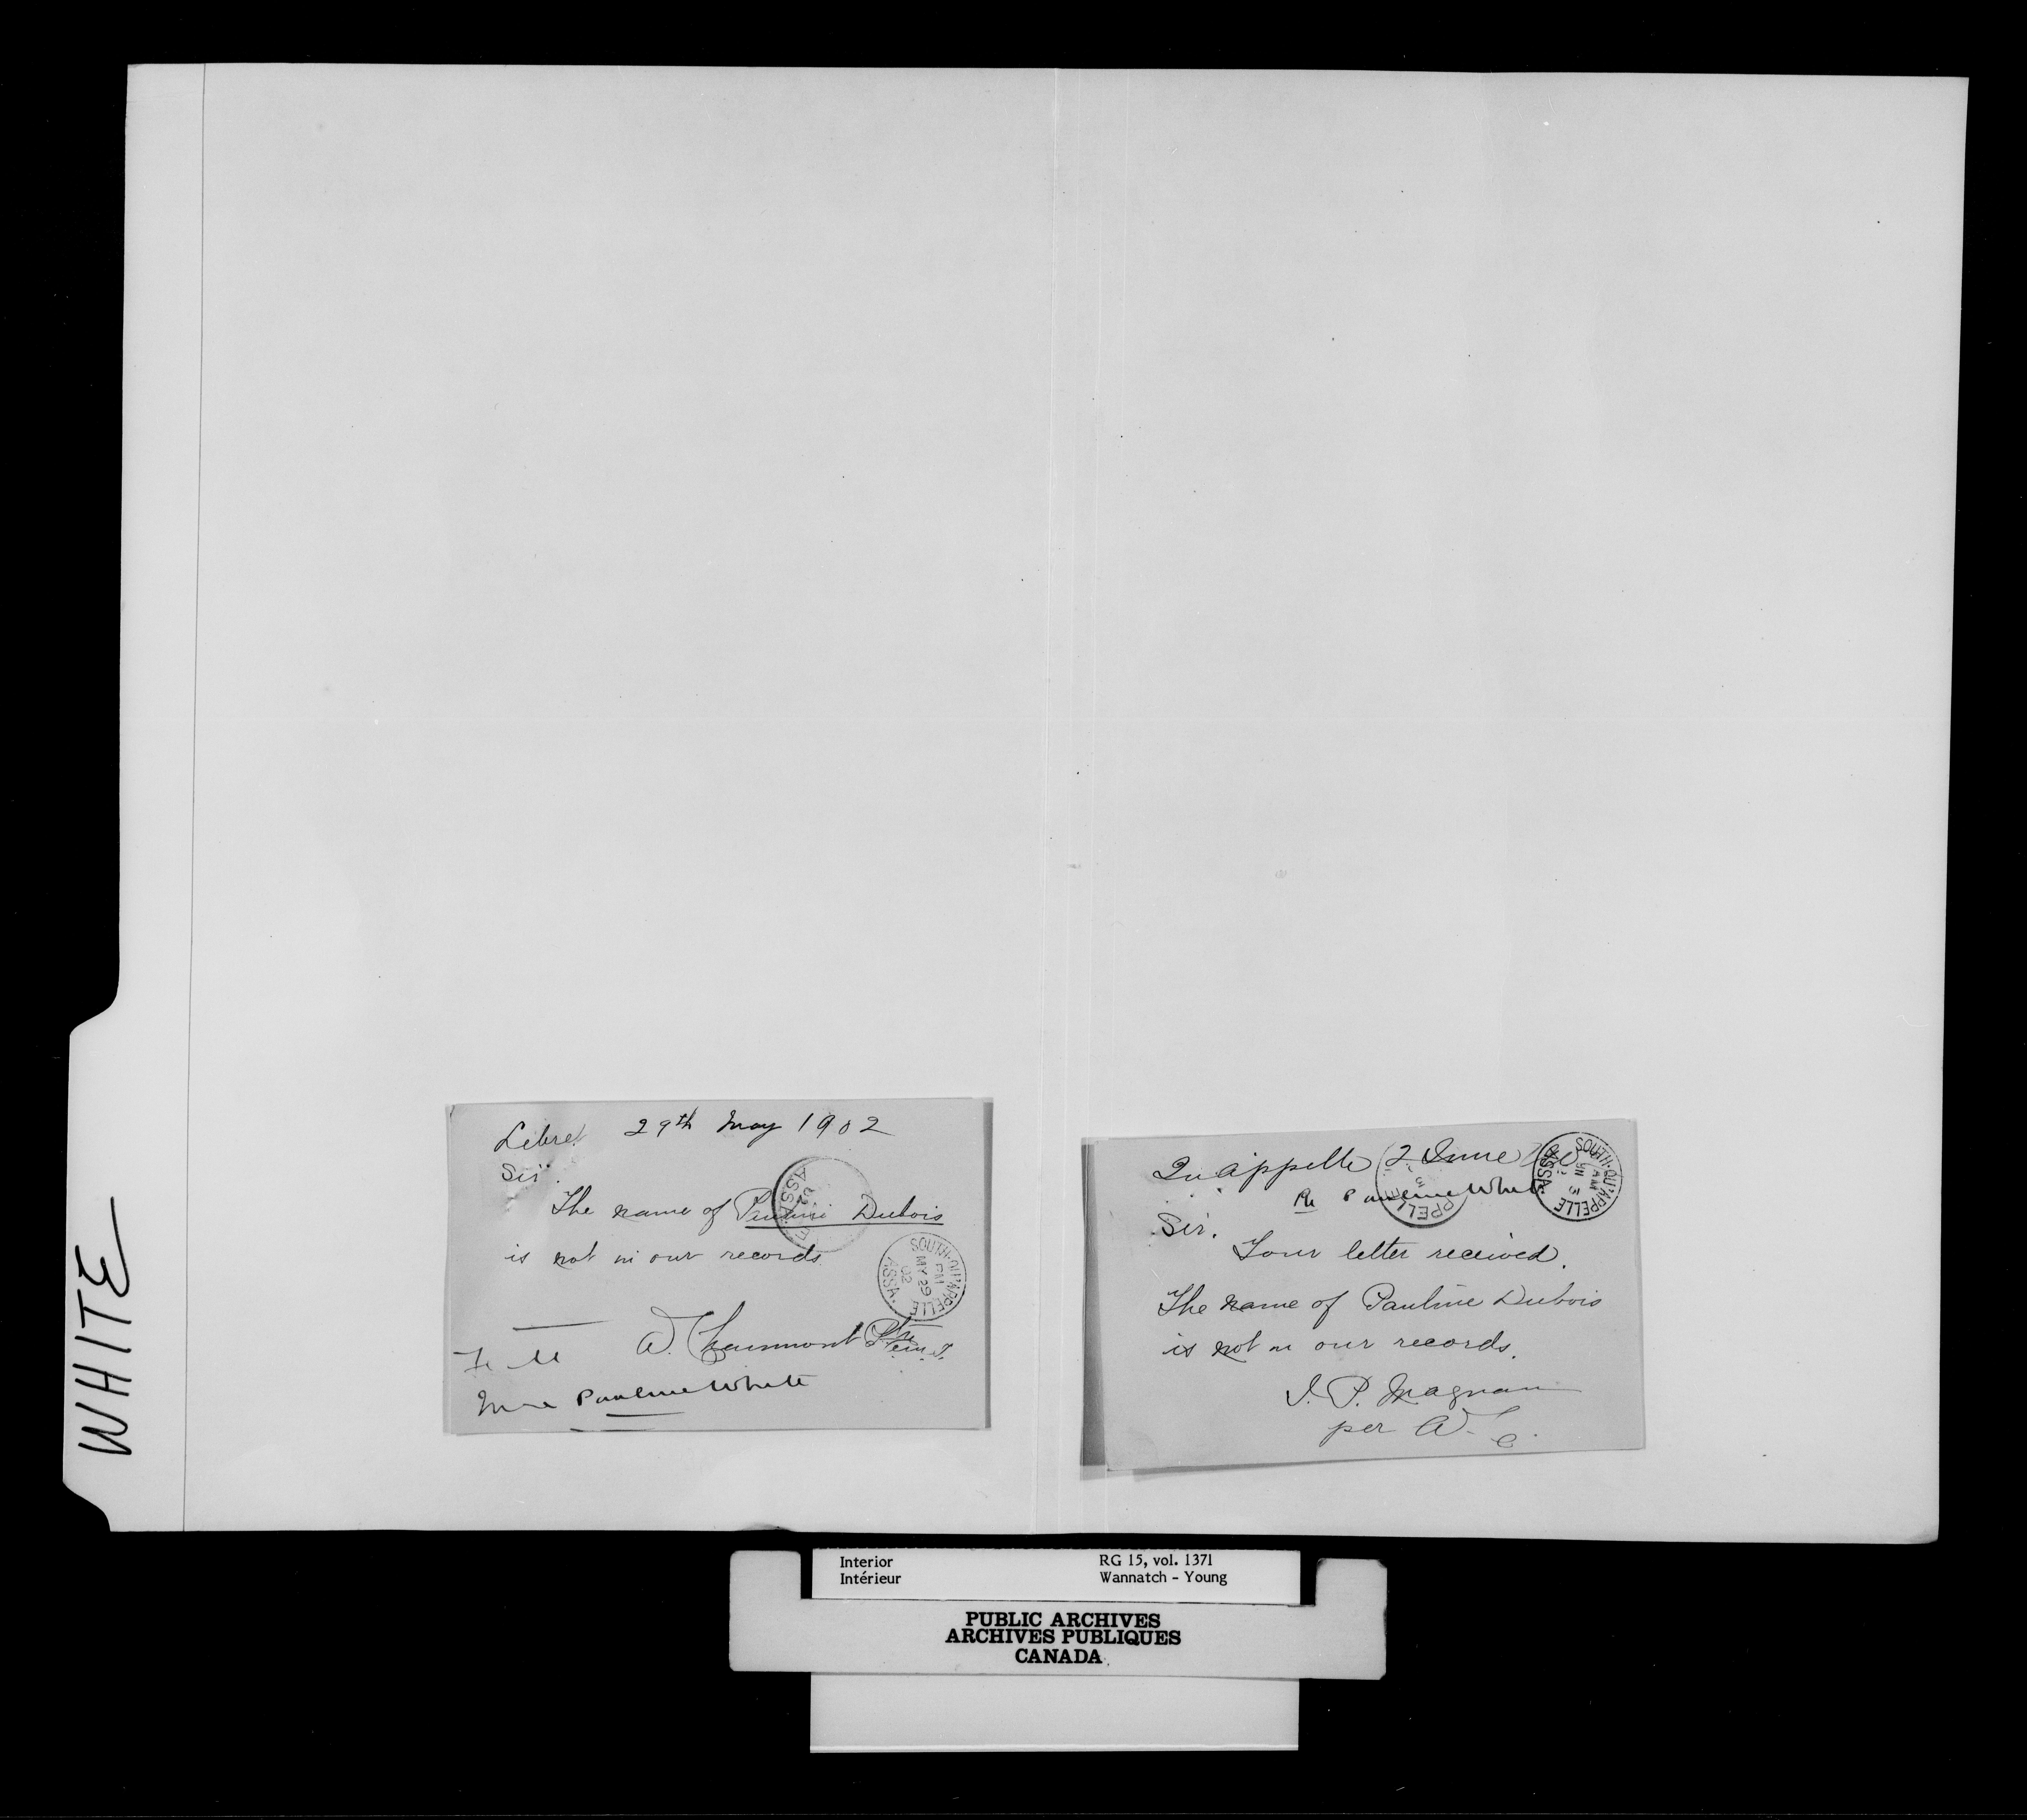 WHITE
Lebret 29th May 1902
Sir.
The name of Pauline Dubois
is not in our records.
A. Chaumont Ptre
Mme Pauline White
ASSA.
02
SOUTH-QU'APPELLE
PM
MY 29
02
ASSA.
Qu'appelle 2 June
Re Pauline White
Sir.
Your letter received.
The name of Pauline Dubois
is not in our records.
J. P. Magnan
per A. C.
SOUTH-QU'APPELLE
AM
JU 3
ASSA.
Interior
Intérieur
RG 15, vol. 1371
Wannatch - Young
PUBLIC ARCHIVES
ARCHIVES PUBLIQUES
CANADA